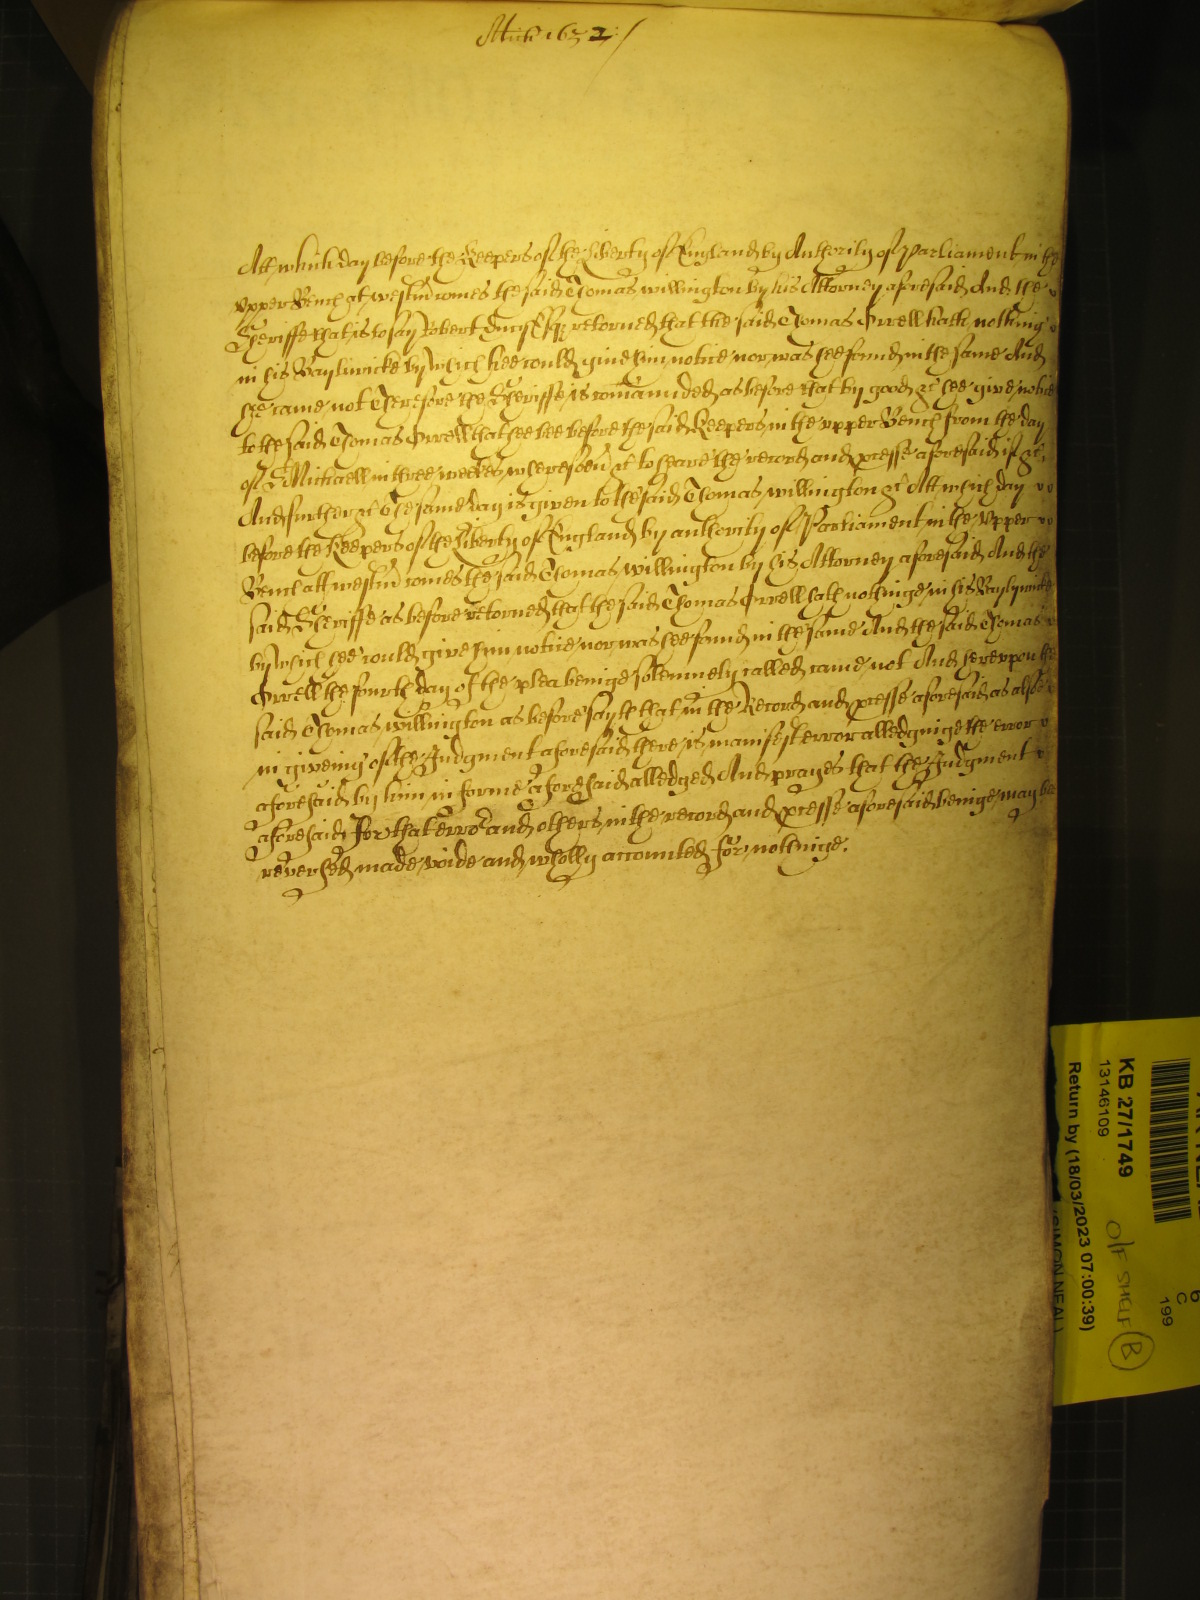 Mich 1652 /
Att which day before the Keepers of the liberty of England by Authority of Parliament in the
upper Bench att westm comes the said Thomas willington by his Attorney aforesaid And the
Sheriffe that is to say Robert Esq retorned that the said Thomas Orrell hath nothing
in his Bayliwicke by which hee could give him notice nor was hee found in the same And
hee came not Therefore the Sheriffe is comanded as before that by good &c hee give notice
to the said Thomas Orrell that hee bee before the said Keepers in the upper Bench from the day
of St Michaell in three weekes wheresoeu &c to heare the record and pcesse aforesaid if &c
And further &c The same day is given to the said Thomas willington &c Att which day
before the Keepers of the Liberty of England by authority of Parliament in the upper
Bench att westm comes the said Thomas willington by his Attorney aforesaid And the
said Sheriffe as before retorned that the said Thomas Orrell hath nothinge in his Baylywicke
by which hee could give him notice nor was hee found in the same And the said Thomas
Orrell the fourth day of the plea beinge solemnely called came not And hereupon the
said Thomas willington as before sayth that in the Record and pcesse aforesaid as alsoe
in giveing of the Judgment aforesaid there is manifest error alledginge the error
aforesaid by him in forme aforesaid alledged And prayes that the Judgment
aforesaid for that error and others in the record and pcesse aforesaid beinge may bee
reversed made voide and wholly accounted for nothinge.
KB 27/1749
13146109
Return by (18/03/2023 07:00:39)
(SIMON NEAL)
O/F SHELF B
6
C
199